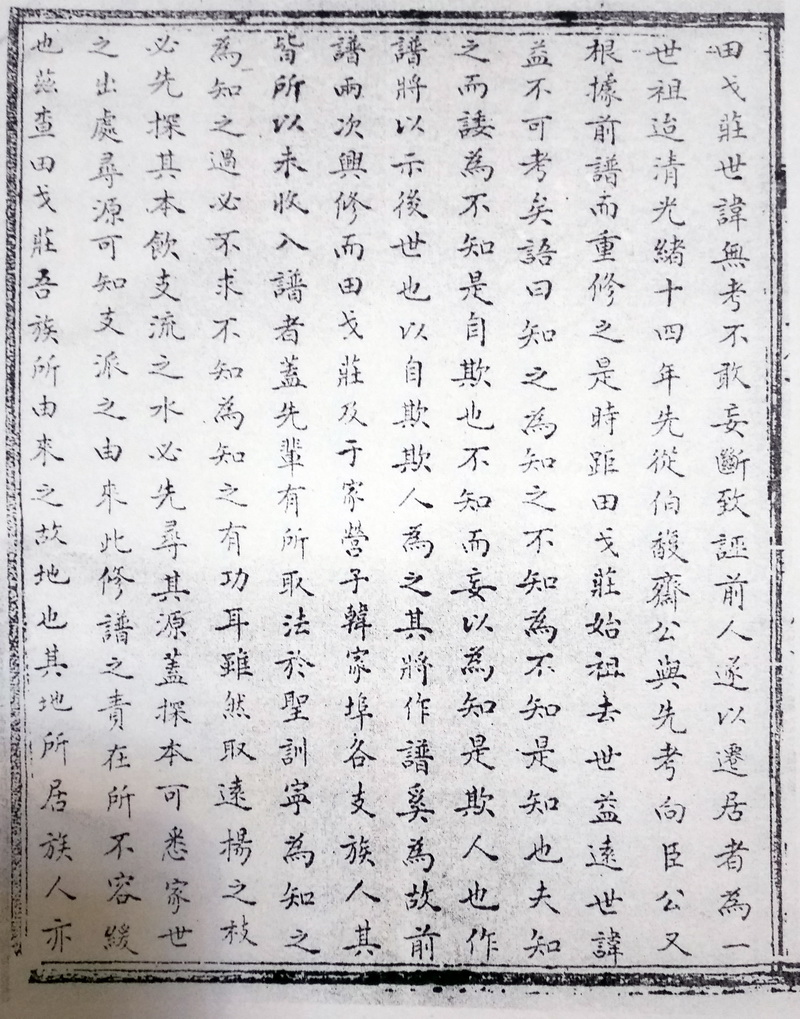 田戈莊世諱無考不敢妄斷致誣前人遂以遷居者為一
世祖迨清光緒十四年先從伯馥齋公與先考向臣公又
根據前譜而重修之是時距田戈莊始祖去世益遠世諱
益不可考矣語曰知之為知之不知為不知是知也夫知
之而諉為不知是自欺也不知而妄以為知是欺人也作
譜將以示後世也以自欺欺人為之其將作譜奚為故前
譜兩次興修而田戈莊及于家營子韓家埠各支族人其
皆所以未收入譜者蓋先輩有所取法於聖訓寧為知之
為知之過必不求不知為知之有功耳雖然取遠揚之枝
必先探其本飲支流之水必先尋其源蓋探本可悉家世
之出處尋源可知支派之由來此修譜之責在所不容緩
也茲查田戈莊吾族所由來之故地也其地所居族人亦